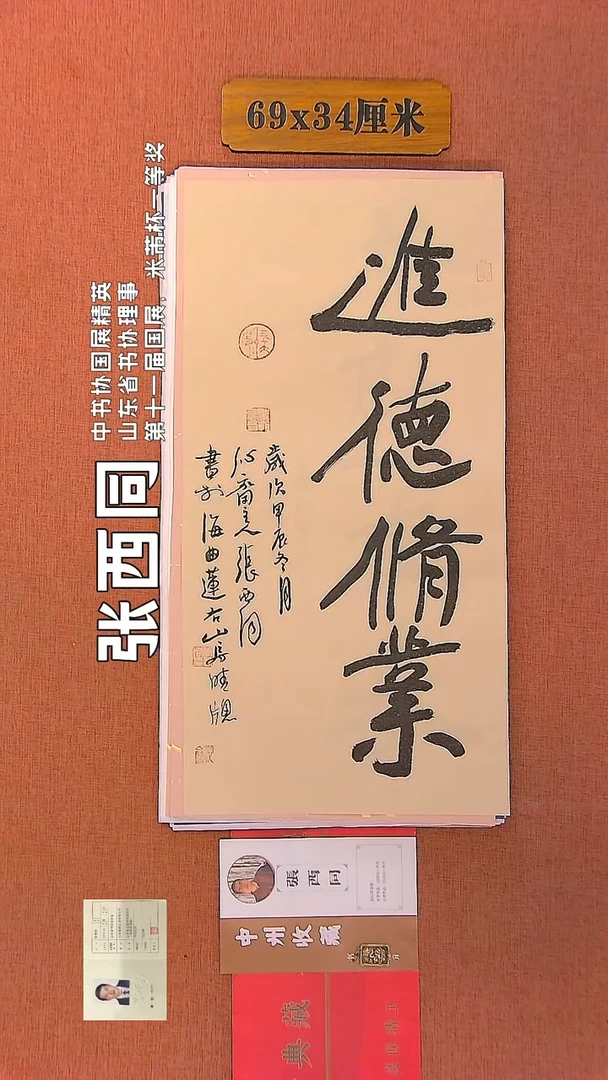 69x34厘米
進德脩業
歲次甲辰冬月
齋主張西同
書於海曲蓮右山房晴牕
张西同
中书协国展精英
山东省书协理事
第十一届国展，米芾杯二等奖
張西同
中州收藏
典藏